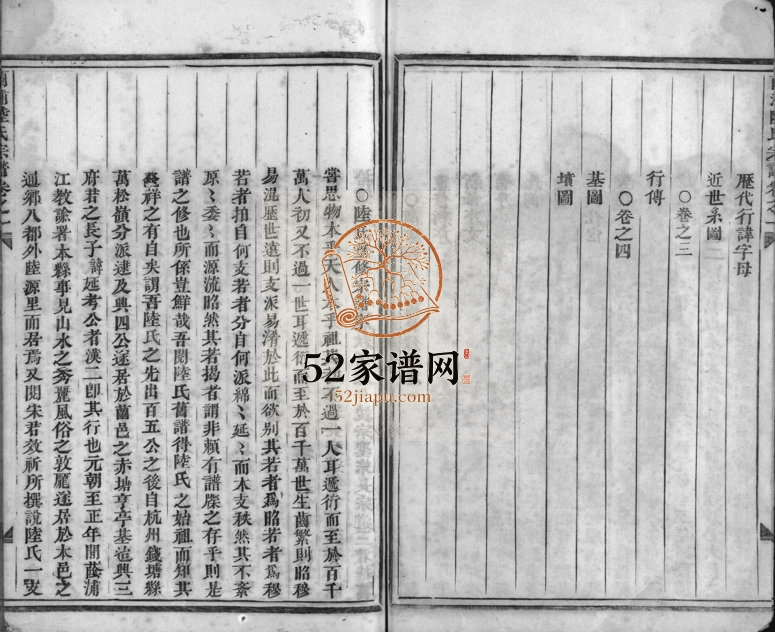 歷代行諱字母
近世系圖
○卷之三
行傳
○卷之四
基圖
墳圖
○陸氏重修宗譜
嘗思物本乎天人本乎祖不過一人耳遞衍而至於百千
萬人初又不過一世耳遞衍而至於百千萬世生齒繁則昭穆
易混歷世遠則支派易淆於此而欲别其若者爲昭若者爲穆
若者抽自何支若者分自何派綿〻延〻而本支秩然其不紊
原〻委〻而源流昭然其若揭者謂非賴有譜牒之存乎則是
譜之修也所係豈鮮哉吾閱陸氏舊譜得陸氏之始祖而知其
發祥之有自矣謂吾陸氏之先出百五公之後自杭州錢塘縣
萬松嶺分派逮及興四公逐居於蘭邑之赤塘亨亭基道興三
府君之長子諱延考公者漢二卽其行也元朝至正年開蔭浦
江教諭署本縣事見山水之秀麗風俗之敦龎逐居於本邑之
通鄉八都外陸源里而居焉又閱朱君效祈所撰說陸氏一支
蘭浦陸氏宗譜卷之一
52家谱网
52jiapu.com